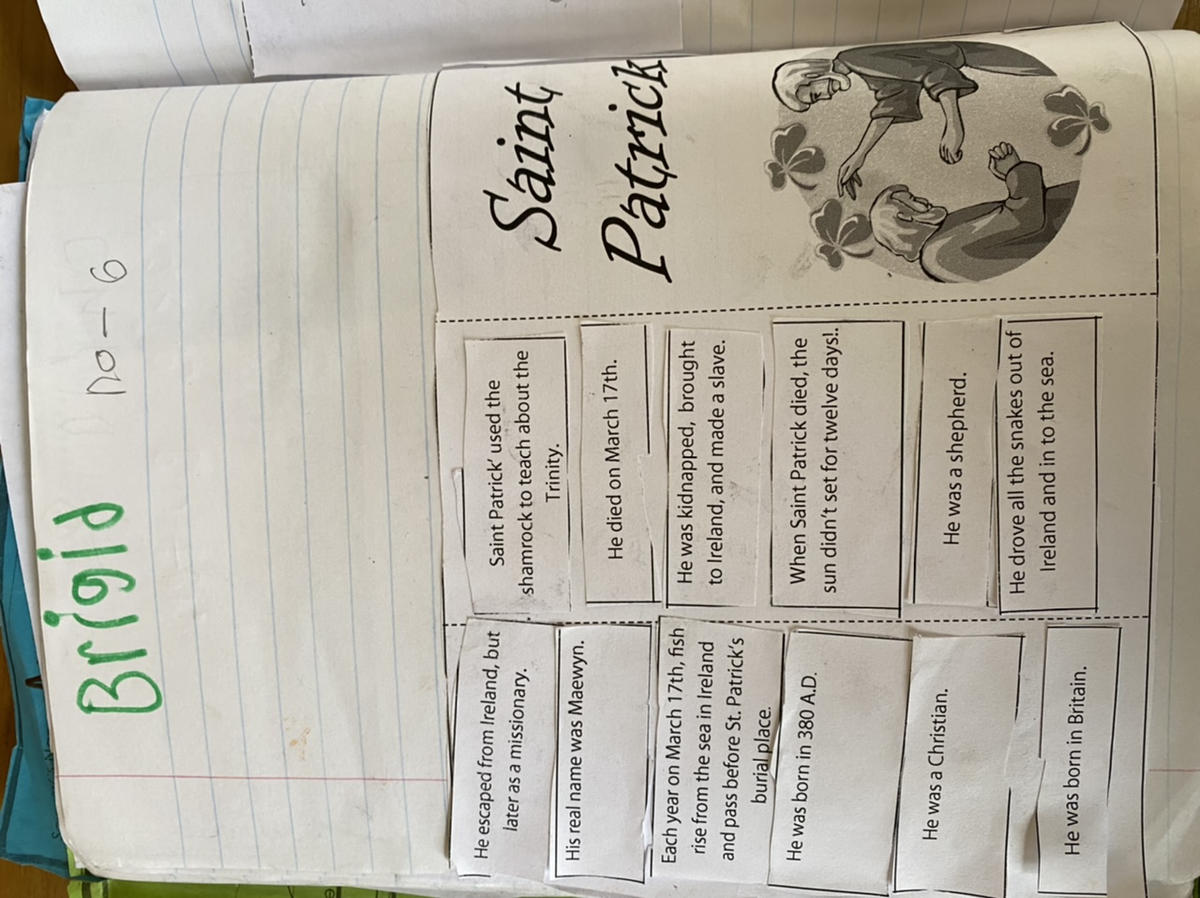 Brigid no - 6
He escaped from Ireland, but
later as a missionary.
His real name was Maewyn.
Each year on March 17th, fish
rise from the sea in Ireland
and pass before St. Patrick's
burial place.
He was born in 380 A.D.
He was a Christian.
He was born in Britain.
Saint Patrick' used the
shamrock to teach about the
Trinity.
He died on March 17th.
He was kidnapped, brought
to Ireland, and made a slave.
When Saint Patrick died, the
sun didn't set for twelve days!.
He was a shepherd.
He drove all the snakes out of
Ireland and in to the sea.
Saint
Patrick